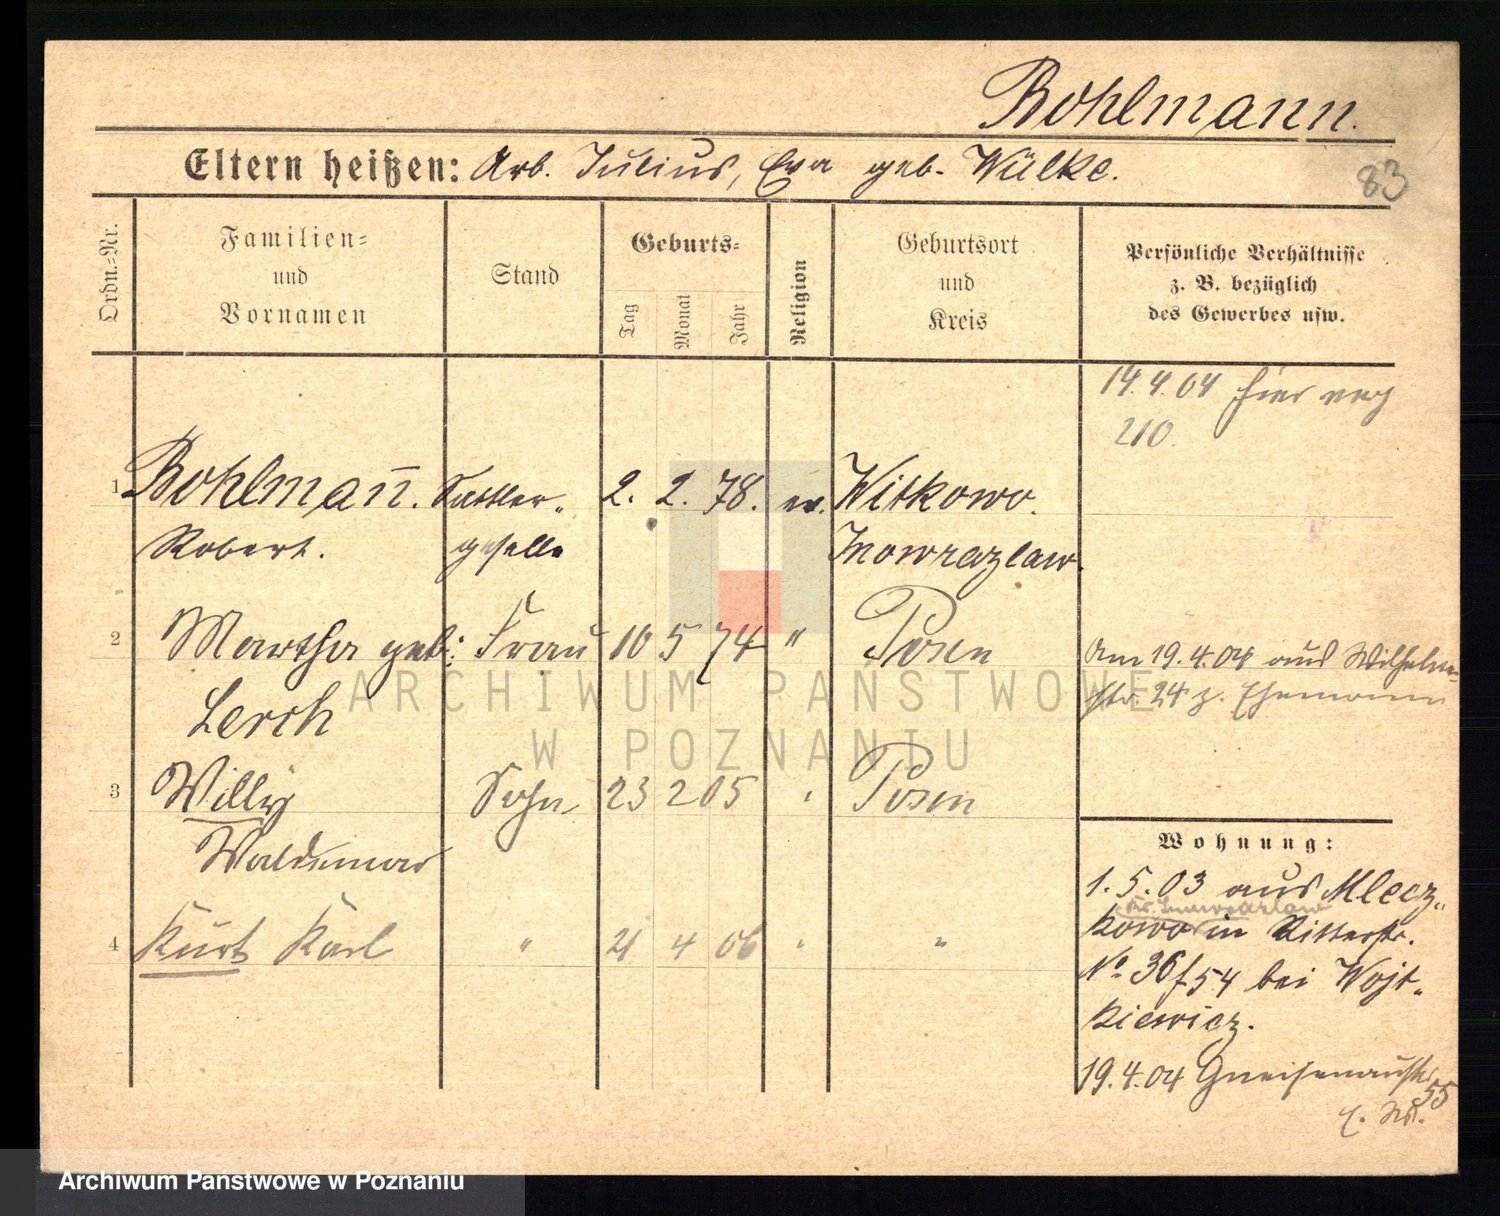 Bohlmann.
Eltern heißen: Arb. Julius, Eva geb. Wülke.
83
Ordn.-Nr.
Familien-
und
Vornamen
Stand
Geburts-
Tag
Monat
Jahr
Religion
Geburtsort
und
Kreis
Persönliche Verhältnisse
z. B. bezüglich
des Gewerbes usw.
14.4.04 hier
210.
1 Bohlman̄. Sattler- 2. 2. 78. ev. Witkowo.
Robert. geselle Inowrazlaw.
2 Martha geb: Frau 10 5 74 " Posen
Lerch
Am 19.4.04 aus Wilhelm-
str. 24 z. Ehemann
3 Willy Sohn 23 2 05 " Posen
Waldemar
4 Kurt Karl " 21 4 06 " "
Wohnung:
1.5.03 aus Mlecz-
Kr. Inowrazlaw
kowo in Ritterstr.
No. 36/54 bei Wojt-
kiewicz.
19.4.04 Gneisenaustr.
55
ARCHIWUM PAŃSTWOWE
W POZNANIU
Archiwum Państwowe w Poznaniu